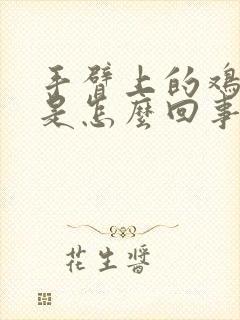 手臂上的鸡
是怎麼回事
花生醬